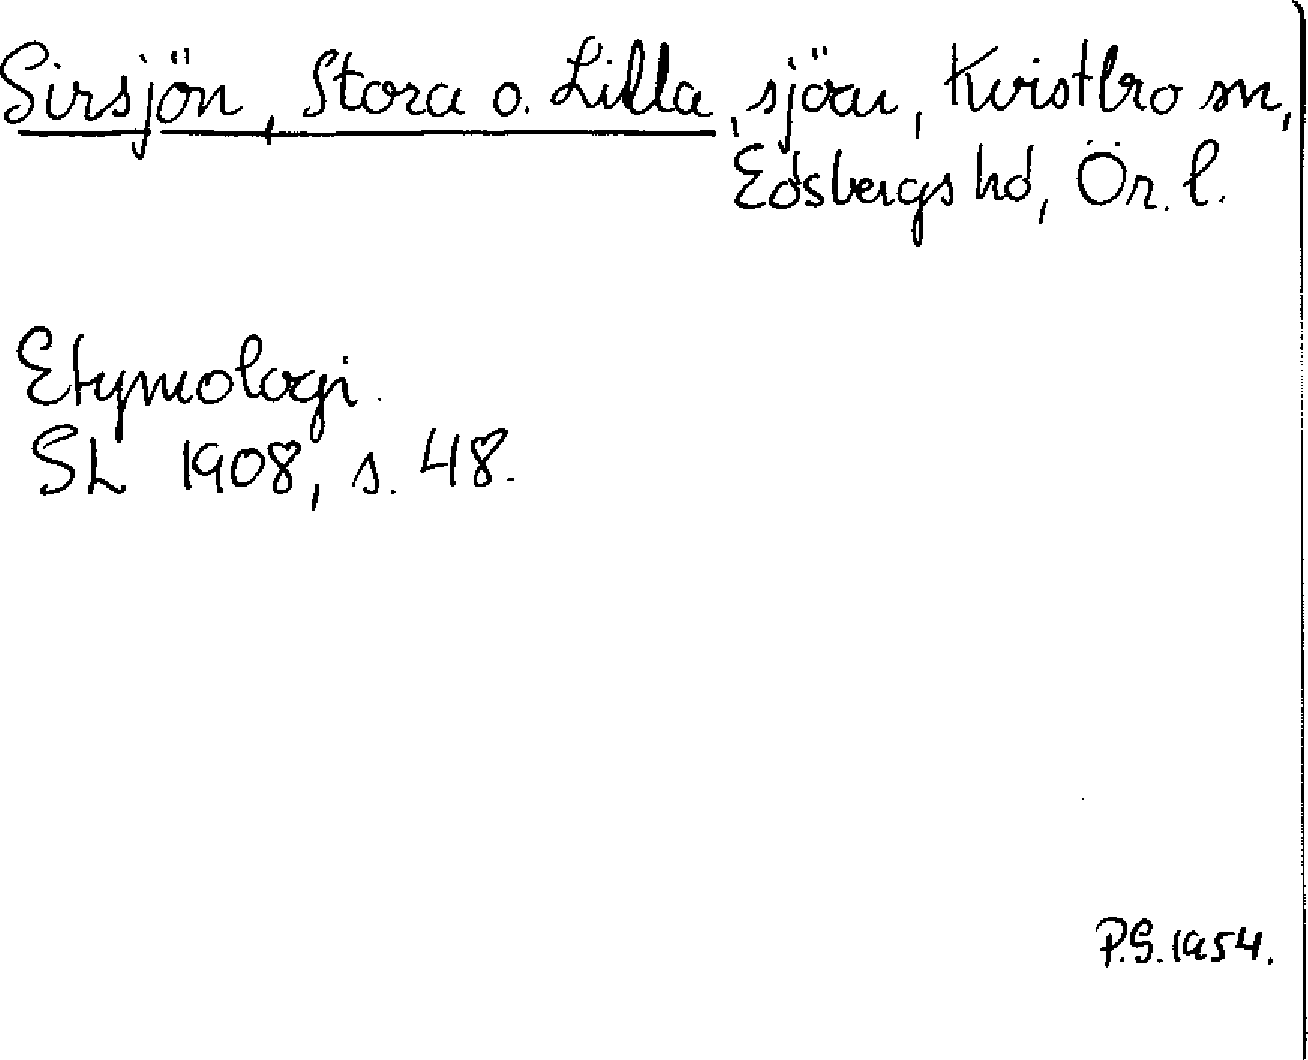 Sirsjön, Stora o. Lilla, sjöar, Kvistbro sn,
Edsbergs hd, Ör. l.
Etymologi.
SL 1908, s. 48.
P.S. 1954.